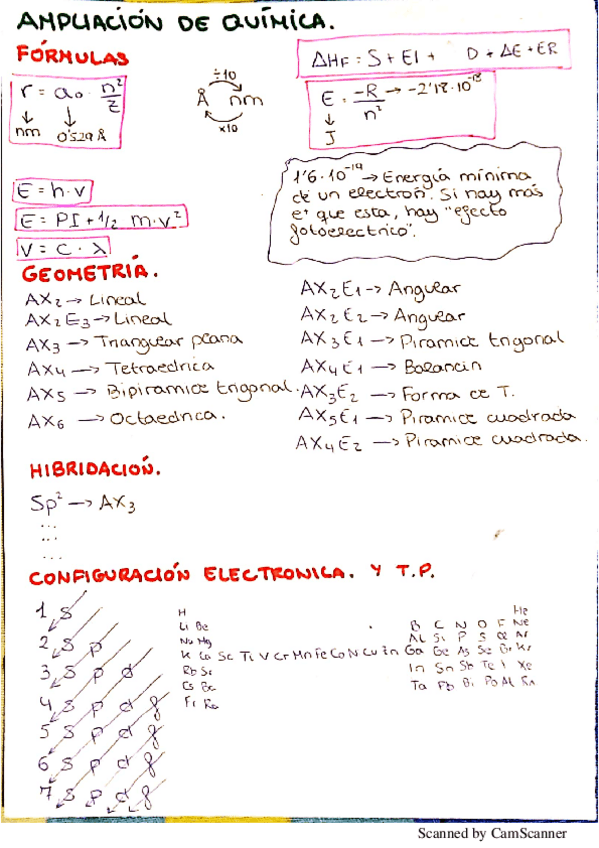 AMPLIACIÓN DE QUÍMICA.
FÓRMULAS
r = a₀ · n²/Z
nm
0'529 Å
÷10
Å nm
x10
ΔHF = S + EI + D + ΔE + ER
E = -R/n² → -2'18·10⁻¹⁸
J
E = h · v
E = PI + 1/2 m·v²
V = C · λ
1'6·10⁻¹⁹ → Energía mínima
de un electrón. Si hay más
e⁻ que esta, hay "efecto
fotoelectrico".
GEOMETRÍA.
AX₂ → Lineal
AX₂E₃ → Lineal
AX₃ → Triangular plana
AX₄ → Tetraedrica
AX₅ → Bipiramide trigonal.
AX₆ → Octaedrica.
AX₂E₁ → Angular
AX₂E₂ → Angular
AX₃E₁ → Piramide trigonal
AX₄E₁ → Balancin
AX₃E₂ → Forma de T.
AX₅E₁ → Piramide cuadrada
AX₄E₂ → Piramide cuadrada.
HIBRIDACIÓN.
Sp² → AX₃
...
...
...
CONFIGURACIÓN ELECTRONICA. Y T.P.
1 s
2 s p
3 s p d
4 s p d f
5 s p d f
6 s p d f
7 s p d f
H He
Li Be B C N O F Ne
Na Mg Al Si P S Cl Ar
K Ca Sc Ti V Cr Mn Fe Co N Cu Zn Ga Ge As Se Br Kr
Rb Sr In Sn Sb Te I Xe
Cs Ba Ta Pb Bi Po At Rn
Fr Ra
Scanned by CamScanner